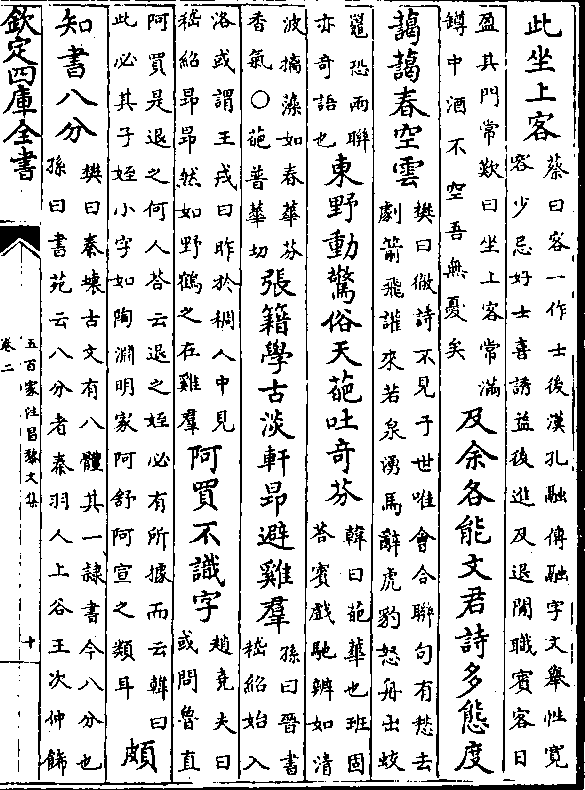 此坐上客
蔡曰客一作士後漢孔融傳融字文舉性寛
容少忌好士喜誘益後進及退閒職賓客日
盈其門常歎曰坐上客常滿
罇中酒不空吾無憂矣
及余各能文君詩多態度
藹藹春空雲
樊曰倣詩不見于世唯會合聯句有愁去
劇箭飛讙來若泉湧馬辭虎豹怒舟出蛟
鼉恐而聯
亦奇語也
東野動驚俗天葩吐奇芬
韓曰葩華也班固
荅賓戲馳辨如清
波摛藻如春華芬
香氣○葩普華切
張籍學古淡軒昂避雞羣
孫曰晋書
嵇紹始入
洛或謂王戎曰昨於稠人中見
嵇紹昂昂然如野鶴之在雞羣
阿買不識字
趙堯夫曰
或問魯直
阿買是退之何人荅云退之姪必有所據而云韓曰
此必其子姪小字如陶淵明家阿舒阿宣之類耳
頗
知書八分
樊曰秦壊古文有八體其一隷書今八分也
孫曰書苑云八分者秦羽人上谷王次仲飾
欽定四庫全書
五百家注昌黎文集
卷二
十